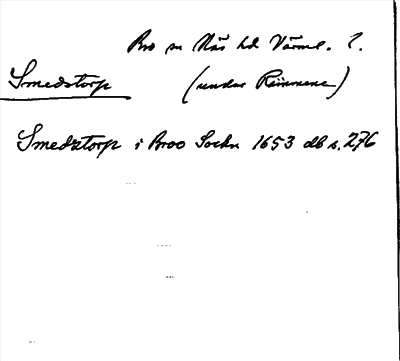 Bro sn Näs hd Värml. l.
Smedstorp (under Rämmene)
Smedztorp i Broo Sochn 1653 db s. 276